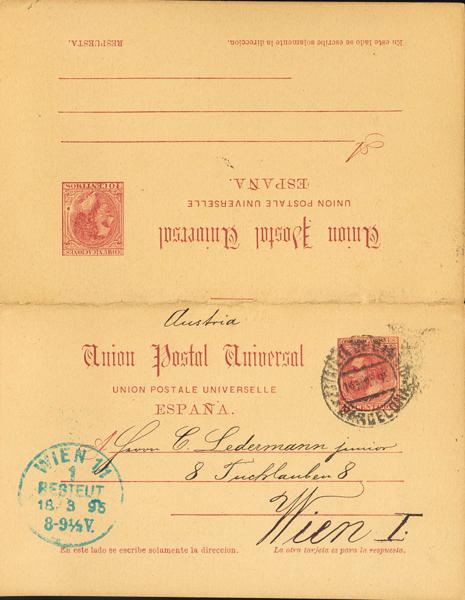 En este lado se escribe solamente la direccion.
RESPUESTA.
A
Union Postal Universal
UNION POSTALE UNIVERSELLE
ESPAÑA.
COMUNICACIONES
10 CENTIMOS
Austria
Union Postal Universal
UNION POSTALE UNIVERSELLE
ESPAÑA.
BARCELONA
A Herrn C. Ledermann junior
8 Tuchlauben 8
Wien I.
WIEN 1/1
1
BESTELLT
18 3 95
8-9½V.
En este lado se escribe solamente la direccion.
La otra tarjeta es para la respuesta.